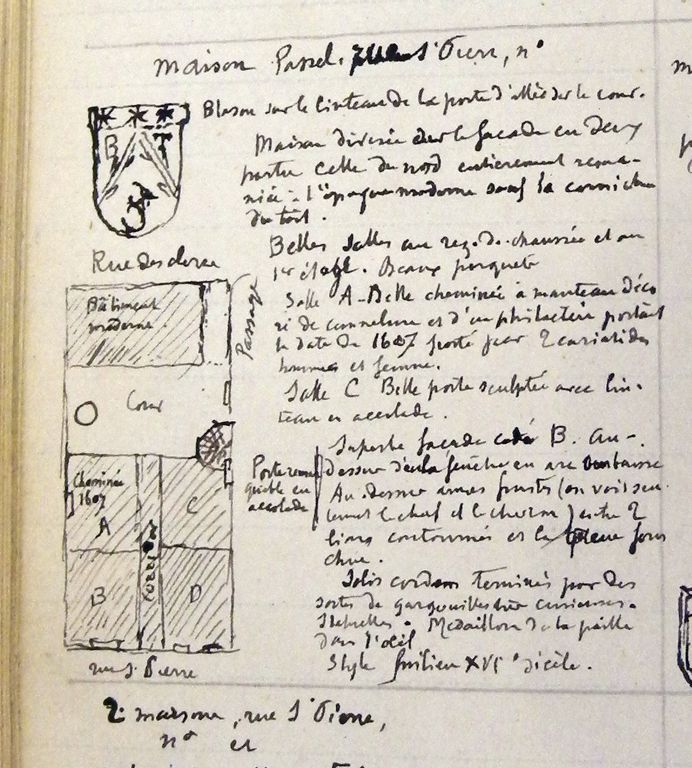 maison Passel. rue St Pierre, n°
Blason sur le linteau de la porte d'allée sur la cour.
Maison divisée sur la façade en deux
partie celle du nord entièrement rema-
niée à l'époque moderne sauf la corniche
du toit.
Belles salles au rez-de-chaussée et au
1er étage. Beaux parquets
Salle A - Belle cheminée à manteau déco
ré de cannelure et d'un philactère portant
la date de 1607 porté par 2 cariatides
hommes et femme.
Salle C Belle porte sculptée avec lin-
teau en accolade.
Superbe façade coté B. Au-
dessus de la fenêtre en arc surbaissé
Au dessus armes frustes (on voit seu
lement le chef et le chevron) entre 2
lions contournés et la
chue.
Jolis cordons terminés par des
sortes de gargouilles très curieuses.
Médaillon de la paille
dans l'oeil
Style XVIe siècle.
B T
Rue des clercs
Bâtiment
moderne
Passage
Cour
Cheminée
1607
A
B
C
D
corridor
Porte remar
quable en
accolade
rue St Pierre
2 maisons, rue St Pierre,
n° et